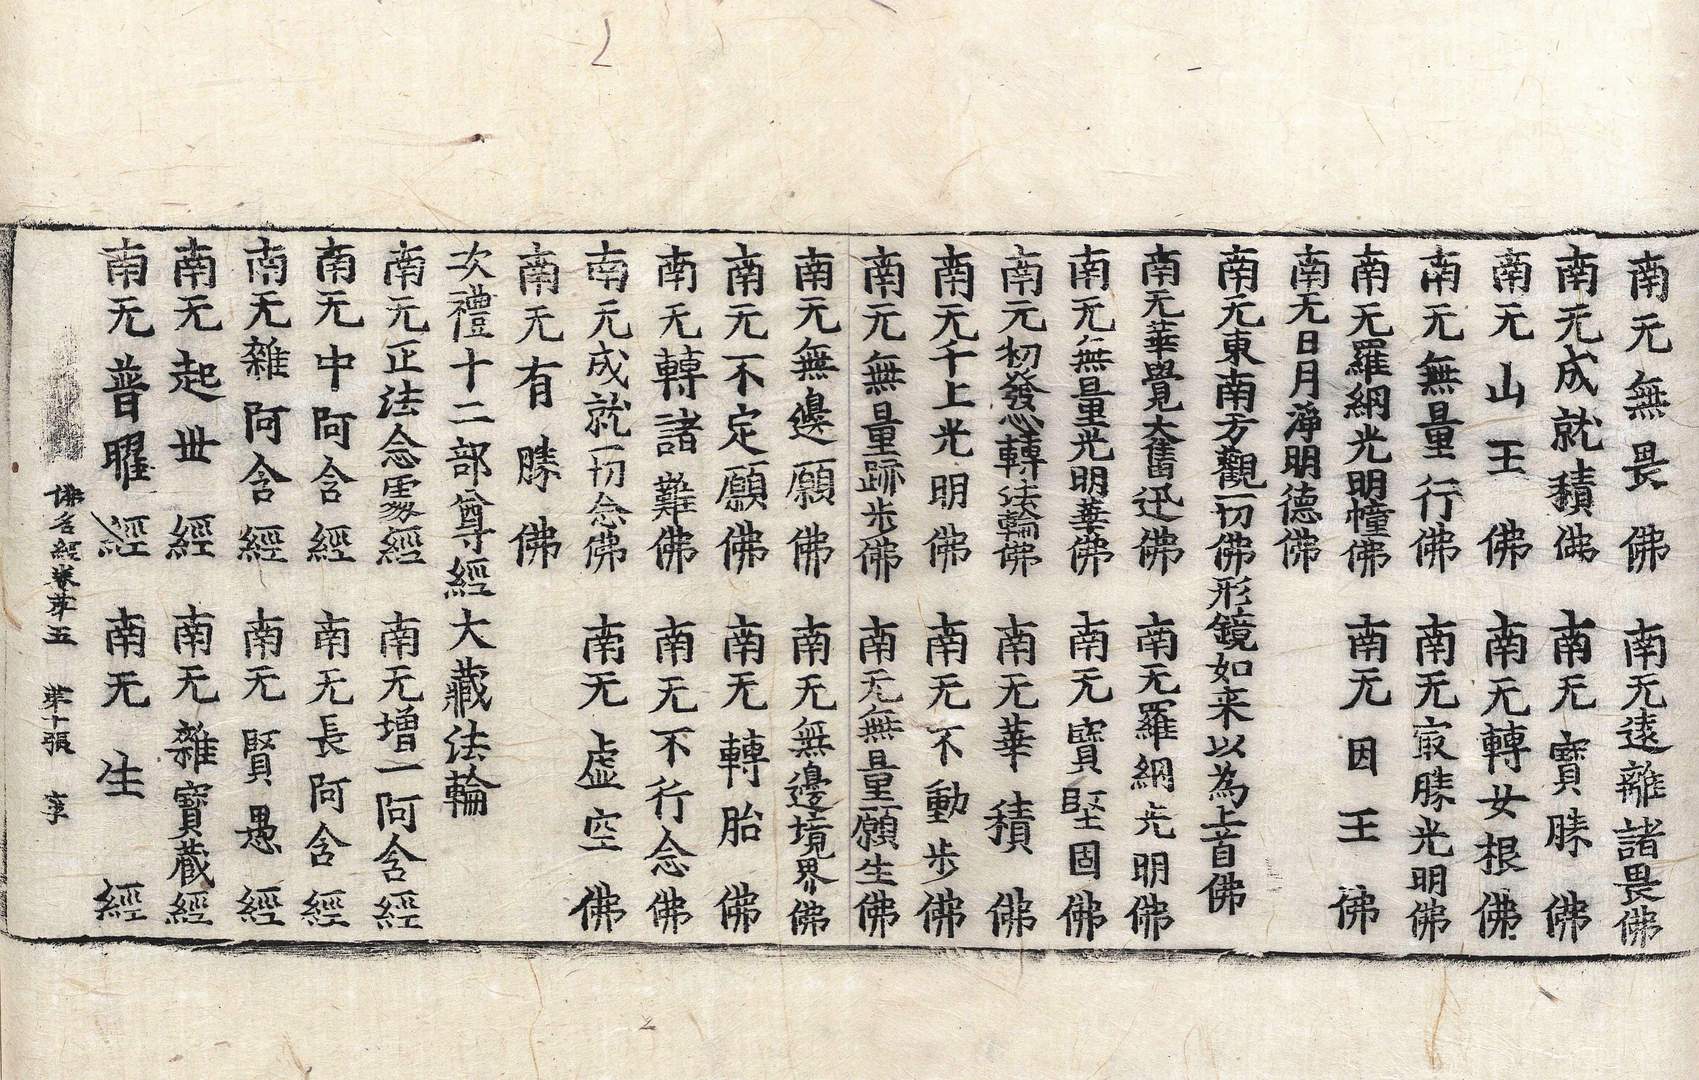 南无無畏佛　南无遠離諸畏佛
南无成就積佛　南无寶勝佛
南无山王佛　南无轉女根佛
南无無量行佛　南无㝡勝光明佛
南无羅網光明幢佛　南无因王佛
南无日月淨明德佛
南无東南方觀一切佛形鏡如来以為上首佛
南无華覺大奮迅佛　南无羅網光明佛
南无無量光明華佛　南无寶堅固佛
南无初發心轉法輪佛　南无華積佛
南无千上光明佛　南无不動步佛
南无無量跡步佛　南无無量願生佛
南无無邊願佛　南无無邊境界佛
南无不定願佛　南无轉胎佛
南无轉諸難佛　南无不行念佛
南无成就一切念佛　南无虛空佛
南无有勝佛
次禮十二部尊經大藏法輪
南无正法念處經　南无增一阿含經
南无中阿含經　南无長阿含經
南无雜阿含經　南无賢愚經
南无起世經　南无雜寶藏經
南无普曜經　南无生經
佛名經卷第五　第十張